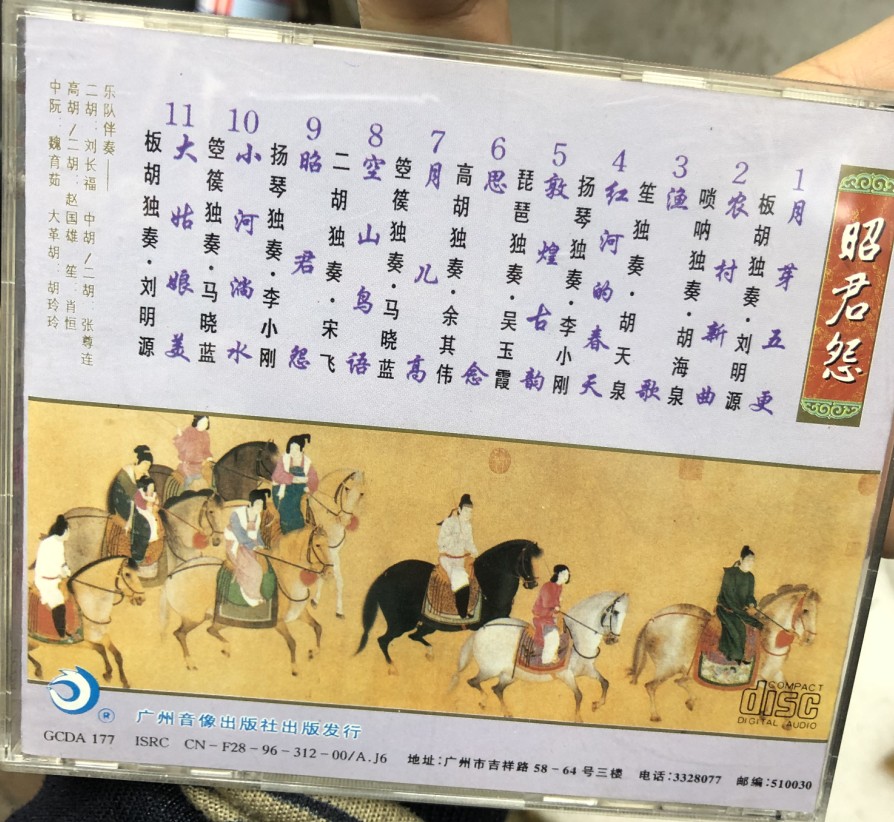 昭君怨
1 月芽五更
板胡独奏·刘明源
2 农村新曲
唢呐独奏·胡海泉
3 渔歌
笙独奏·胡天泉
4 红河的春天
扬琴独奏·李小刚
5 敦煌古韵
琵琶独奏·吴玉霞
6 思念
高胡独奏·余其伟
7 月儿高
箜篌独奏·马晓蓝
8 空山鸟语
二胡独奏·宋飞
9 昭君怨
扬琴独奏·李小刚
10 小河淌水
箜篌独奏·马晓蓝
11 大姑娘美
板胡独奏·刘明源
乐队伴奏——
二胡：刘长福 中胡/二胡：张尊连
高胡/二胡：赵国雄 笙：肖恒
中阮：魏育茹 大革胡：胡玲玲
COMPACT
disc
DIGITAL AUDIO
® 广州音像出版社出版发行
GCDA 177 ISRC CN-F28-96-312-00/A.J6 地址：广州市吉祥路58-64号三楼 电话：3328077 邮编：510030